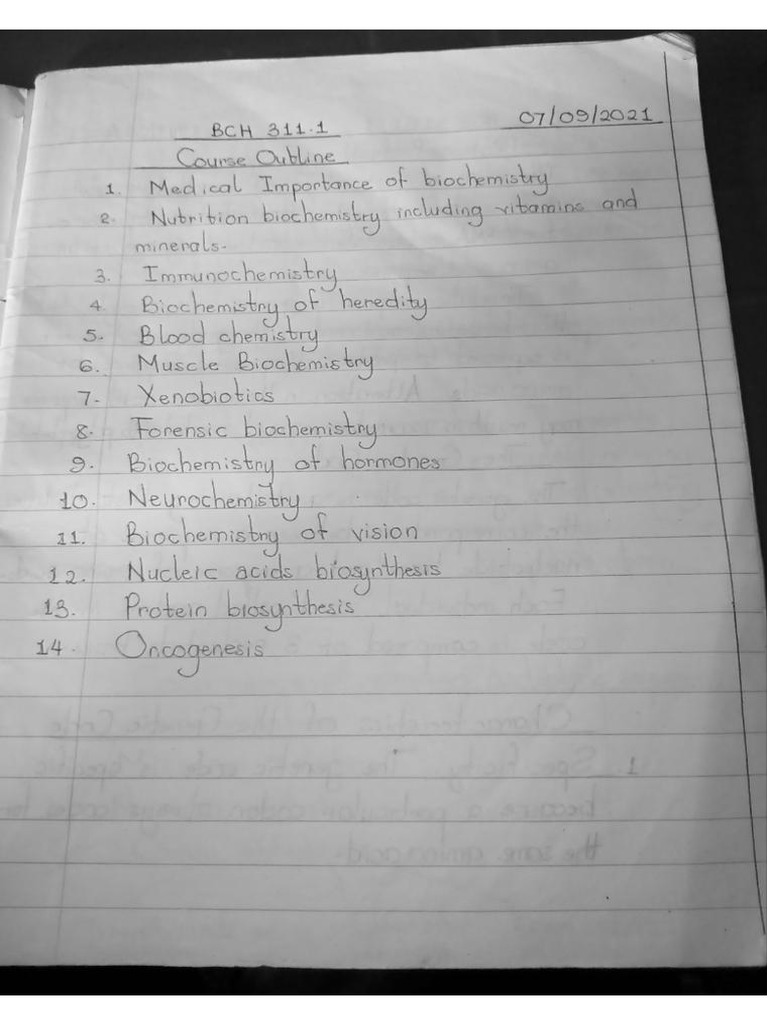 BCH 311.1
07/09/2021
Course Outline
1. Medical Importance of biochemistry
2. Nutrition biochemistry including vitamins and
minerals.
3. Immunochemistry
4. Biochemistry of heredity
5. Blood chemistry
6. Muscle Biochemistry
7. Xenobiotics
8. Forensic biochemistry
9. Biochemistry of hormones
10. Neurochemistry
11. Biochemistry of vision
12. Nucleic acids biosynthesis
13. Protein biosynthesis
14. Oncogenesis